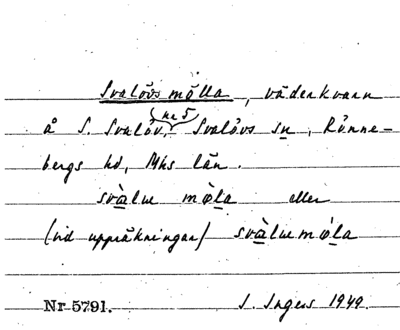 Svalövs mölla, väderkvarn
nr 5
å S. Svalöv, Svalövs sn, Rönne-
bergs hd, Mhs län.
svàlue mø̀la eller
(vid uppräkningar) svàluemǿla
Nr 5791. I. Ingers 1949.